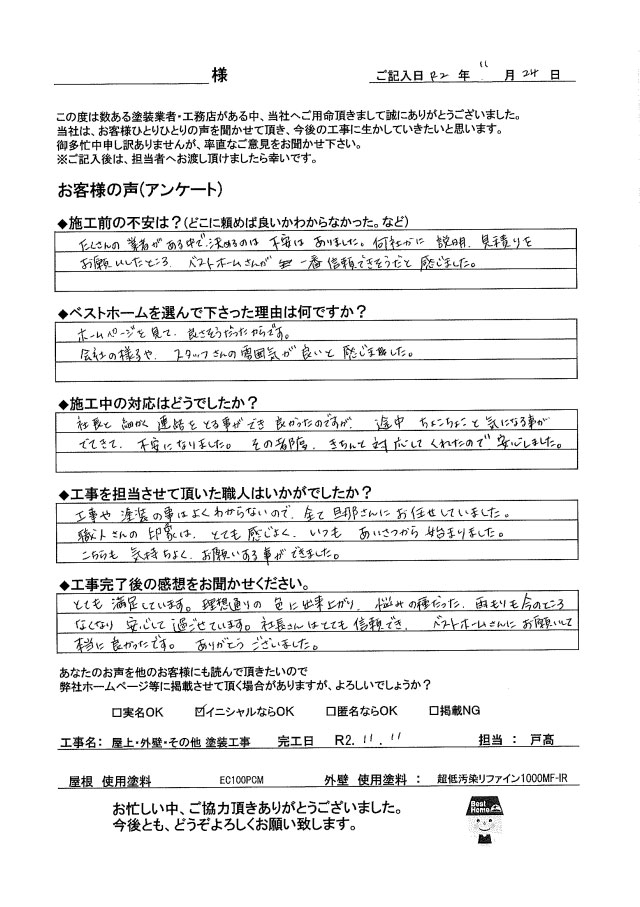 様
ご記入日 R2 年 11 月 24 日
この度は数ある塗装業者・工務店がある中、当社へご用命頂きまして誠にありがとうございました。
当社は、お客様ひとりひとりの声を聞かせて頂き、今後の工事に生かしていきたいと思います。
御多忙中申し訳ありませんが、率直なご意見をお聞かせ下さい。
※ご記入後は、担当者へお渡し頂けましたら幸いです。
お客様の声(アンケート)
◆施工前の不安は？(どこに頼めば良いかわからなかった。など)
たくさんの 業者が ある中で、決めるのは 不安は ありました。何社かに 説明、見積りを
お願いしたところ、ベストホームさんが 一番 信頼できそうだと 感じました。
◆ベストホームを選んで下さった理由は何ですか？
ホームページを見て、良さそうだったからです。
会社の様子や、スタッフさんの雰囲気が良いと 感じました。
◆施工中の対応はどうでしたか？
社長と 細かく 連絡を とる事ができ 良かったのですが、途中 ちょこちょこと 気になる事が
でてきて、不安になりました。その都度、きちんと 対応して くれたので 安心しました。
◆工事を担当させて頂いた職人はいかがでしたか？
工事や 塗装の事は よくわからないので、全て 旦那さんに お任せしていました。
職人さんの 印象は、とても 感じよく、いつも あいさつから 始まりました。
こちらも 気持ちよく、お願いする事ができました。
◆工事完了後の感想をお聞かせください。
とても 満足しています。理想通りの 色に出来上がり、悩みの種だった、雨もりも今のところ
なくなり 安心して 過ごせています。社長さんはとても 信頼でき、ベストホームさんにお願いして
本当に 良かったです。ありがとう ございました。
あなたのお声を他のお客様にも読んで頂きたいので
弊社ホームページ等に掲載させて頂く場合がありますが、よろしいでしょうか？
□実名OK ☑イニシャルならOK □匿名ならOK □掲載NG
工事名： 屋上・外壁・その他 塗装工事 完工日 R2. 11. 11 担当 ： 戸高
屋根 使用塗料 EC100PCM 外壁 使用塗料 ： 超低汚染リファイン1000MF-IR
お忙しい中、ご協力頂きありがとうございました。
今後とも、どうぞよろしくお願い致します。
Best
Home